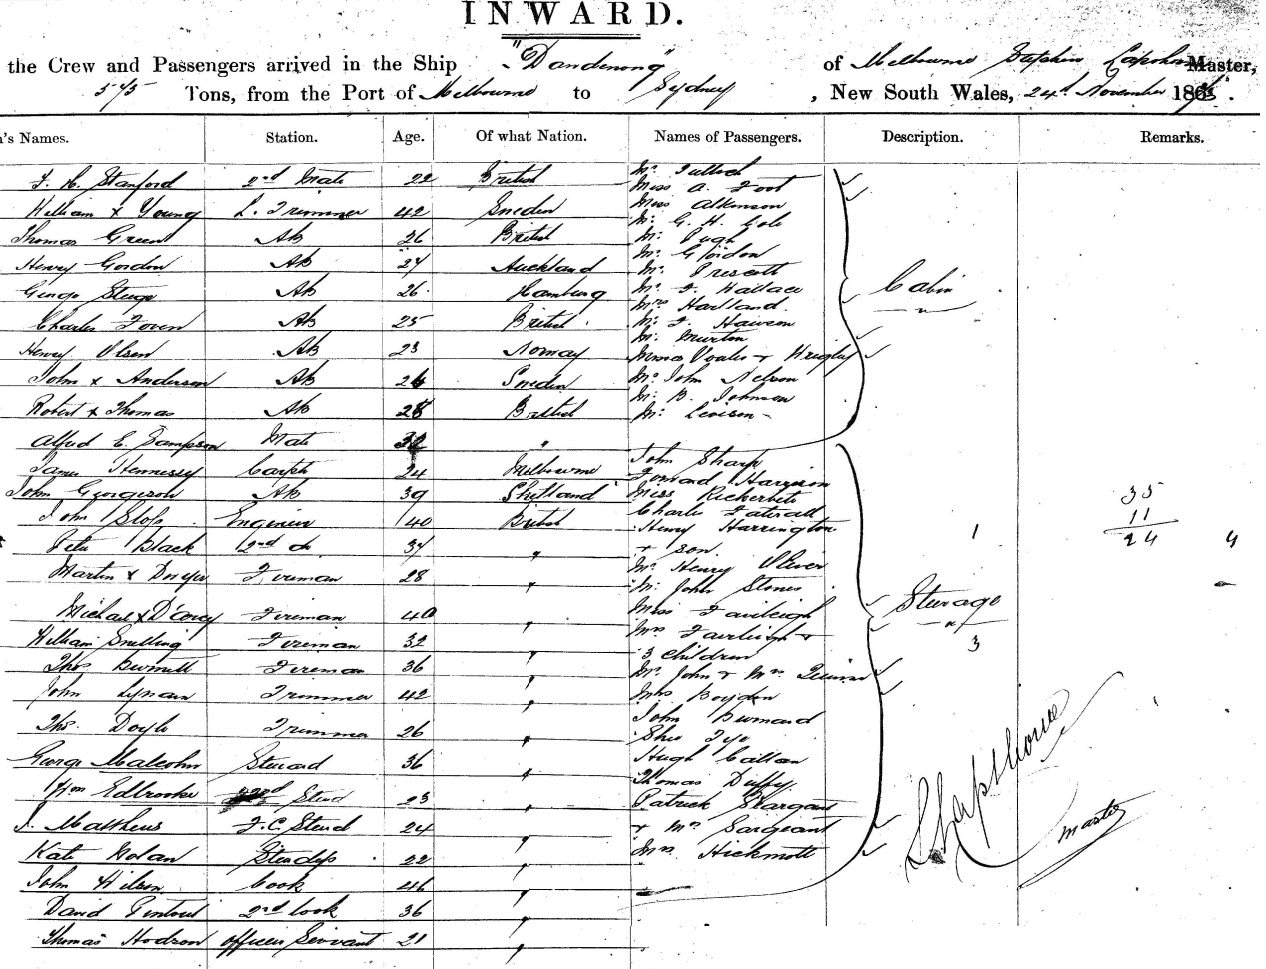 INWARD.
the Crew and Passengers arrived in the Ship "Dandenong" of Melbourne Master,
575 Tons, from the Port of Melbourne to Sydney, New South Wales, 24th November 186
's Names. Station. Age. Of what Nation. Names of Passengers. Description. Remarks.
F. H. Stanford 2nd Mate 22 British
William x Young L. Trimmer 42 Sweden
Thomas Green Ab 26 British
Henry Gordon Ab 27 Auckland
Ab 26 Hamburg
Charles Ab 25 British
Henry Olsen Ab 23 Norway
John x Anderson Ab 26 Sweden
Robert x Thomas Ab 28 British
Alfred E. Sampson Mate "
James Hennessy Carptr 24 Melbourne
John Georgeson Ab 39 Shetland
John Engineer 40 British
Peter Black 2nd do 37 "
Martin x Dwyer Fireman 28 "
Michael x D'arcy Fireman 40 "
William Snelling Fireman 32 "
Thos Fireman 36 "
John Trimmer 42 "
Thos Doyle Trimmer 26 "
George Malcolm Steward 36 "
Wm Edbrooke 2nd Stewd 23 "
J. Matthews F.C. Stewd 24 "
Kate Nolan Stewdss 22 "
John Wilson Cook 46 "
David 2nd Cook 36 "
Thomas Hodson officers Servant 21 "
Mr Tulloch
Miss A. Foot
Miss Atkinson
Mr G. H. Cole
Mr Pugh
Mr Gordon
Mr Prescott
Mr F. Wallace
Mrs Hartland
Mr F. Hawson
Mr Murton
Mr John Nelson
Mr B. Johnson
Mr Levison
Cabin
John Sharp
Harrison
Miss
Charles
Henry Harrington
+ son
Mr Henry Oliver
Mr John Stones
Miss Fairleigh
Mrs Fairleigh +
3 children
Mr John + Mrs
Mrs Boydon
John
Hugh Callan
Thomas Duffy
Patrick Sargeant
+ Mrs Sargeant
Mrs Hickmott
1
Steerage
3
35
11
24
4
S Lapthorne
master